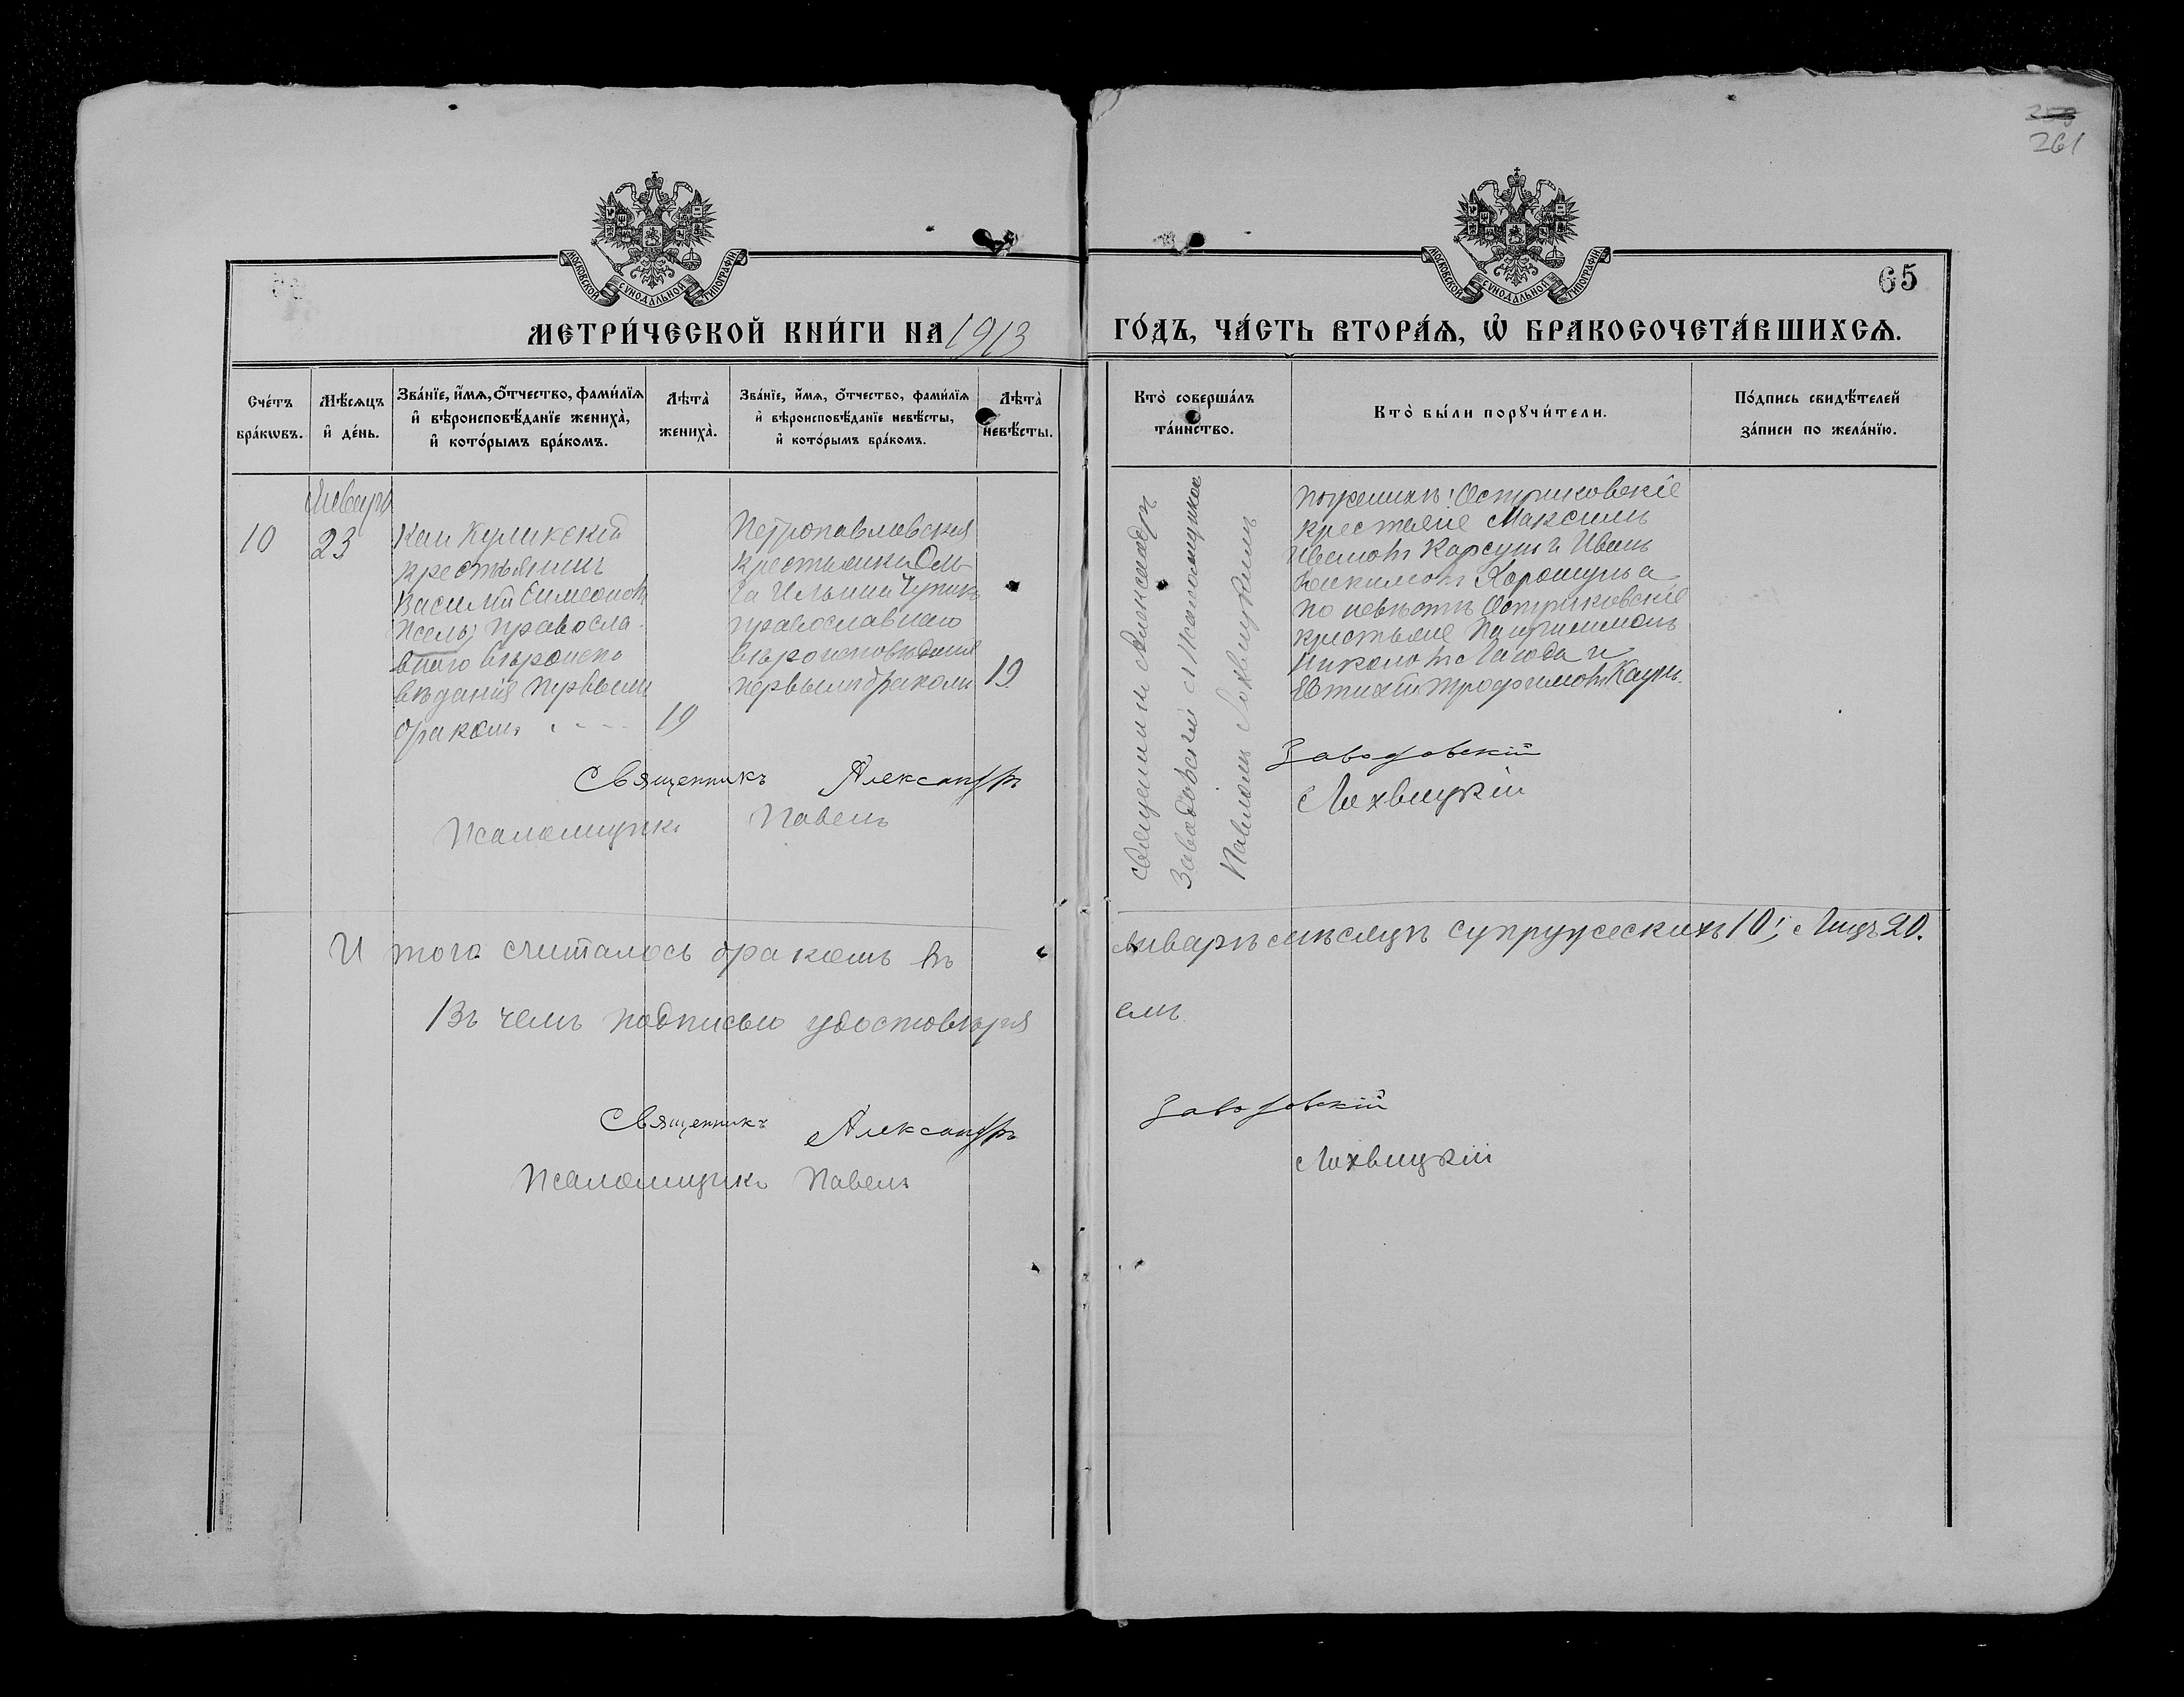 261
МОСКОВСКОЙ СѴНОДАЛЬНОЙ ТИПОГРАФІИ
МОСКОВСКОЙ СѴНОДАЛЬНОЙ ТИПОГРАФІИ
65
МЕТРИ́ЧЕСКОЙ КНИ́ГИ НА 1913 ГО́ДЪ, ЧА́СТЬ ВТОРА́Ѧ, Ѽ БРАКОСОЧЕТА́ВШИХСѦ.
Сче́тъ бра́кѡвъ.
Мѣ́сѧцъ и҆ де́нь.
Зва́нїе, и҆́мѧ, ѻ҆́тчество, фами́лїѧ и҆ вѣроисповѣ́данїе жениха̀, и҆ кото́рымъ бра́комъ.
Лѣта̀ жениха̀.
Зва́нїе, и҆́мѧ, ѻ҆́тчество, фами́лїѧ и҆ вѣроисповѣ́данїе невѣ́сты, и҆ кото́рымъ бра́комъ.
Лѣта̀ невѣ́сты.
Кто̀ соверша́лъ та́инство.
Кто̀ бы́ли порꙋчи́тели.
По́дпись свидѣ́телей за́писи по жела́нїю.
Январь
10
23
крестьянинъ
Василій Симеоновъ
Псель; правосла
внаго вѣроиспо
вѣданія первымъ
бракомъ
19
Петропавловская
крестьянка Оль
га Ильина Чупикъ
православнаго
вѣроисповѣданія
первымъ бракомъ
19
Священникъ Александръ
Заводовскій съ псаломщикомъ
Павломъ Лохвицкимъ
по женихѣ: Остриковскіе
крестьяне Максимъ
Ивановъ Карсунъ и Иванъ
а
по невѣстѣ Остриковскіе
крестьяне
и
Евтихій Трофимовъ
Священникъ Александръ Заводовскій
Псаломщикъ Павелъ Лохвицкій
Итого считалось бракомъ въ Январѣ мѣсяцѣ супружескихъ 10; Лицъ 20.
Въ чемъ подписью удостовѣряемъ
Священникъ Александръ Заводовскій
Псаломщикъ Павелъ Лохвицкій